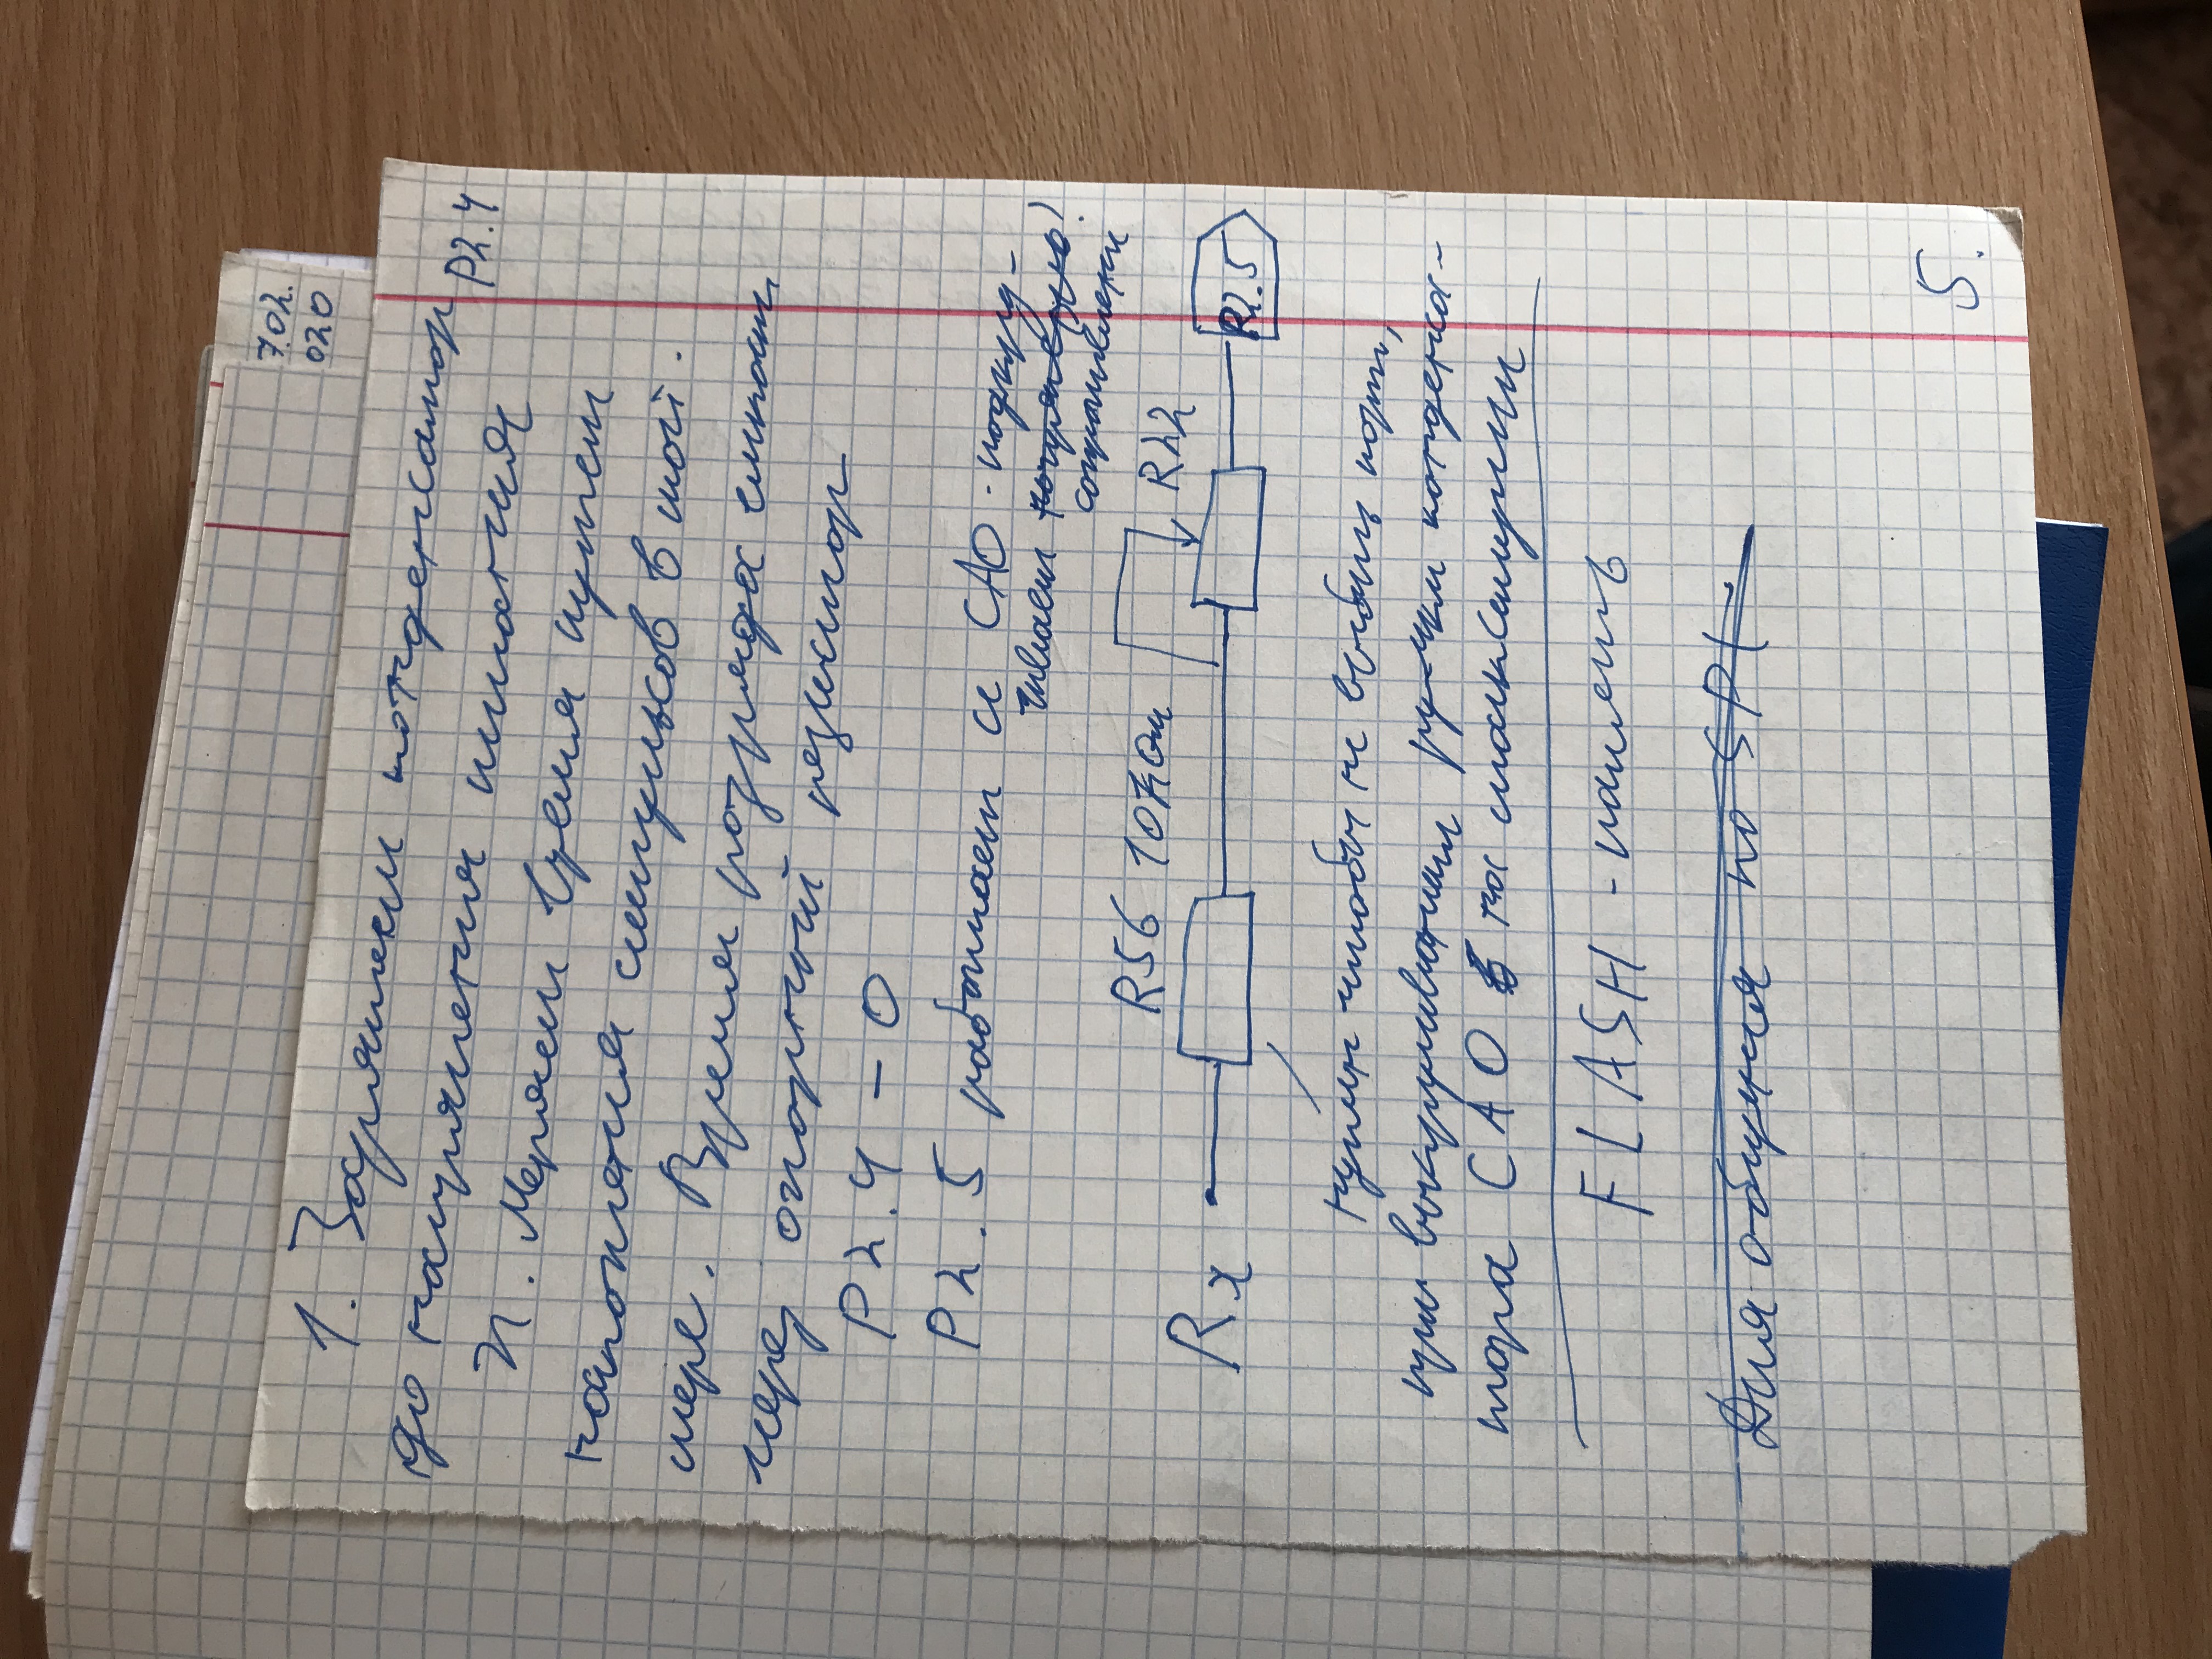 7.02.
020
1. Заряжаем конденсатор P2.4
до напряжения питания
2. Меряем время путем
накопления импульсов в тай-
мере. Время разряда емкости
через опорный резистор
P2.4 – 0
P2.5 работает и САО - подкру-
чиваем напряжение!
сопротивлени
R56 10кОм R22
Rx P2.5
нужен чтобы не выбить порт,
при выкручивании ручки конденса-
тора САО на максимум
FLASH - память
Для общения по SPI
5.